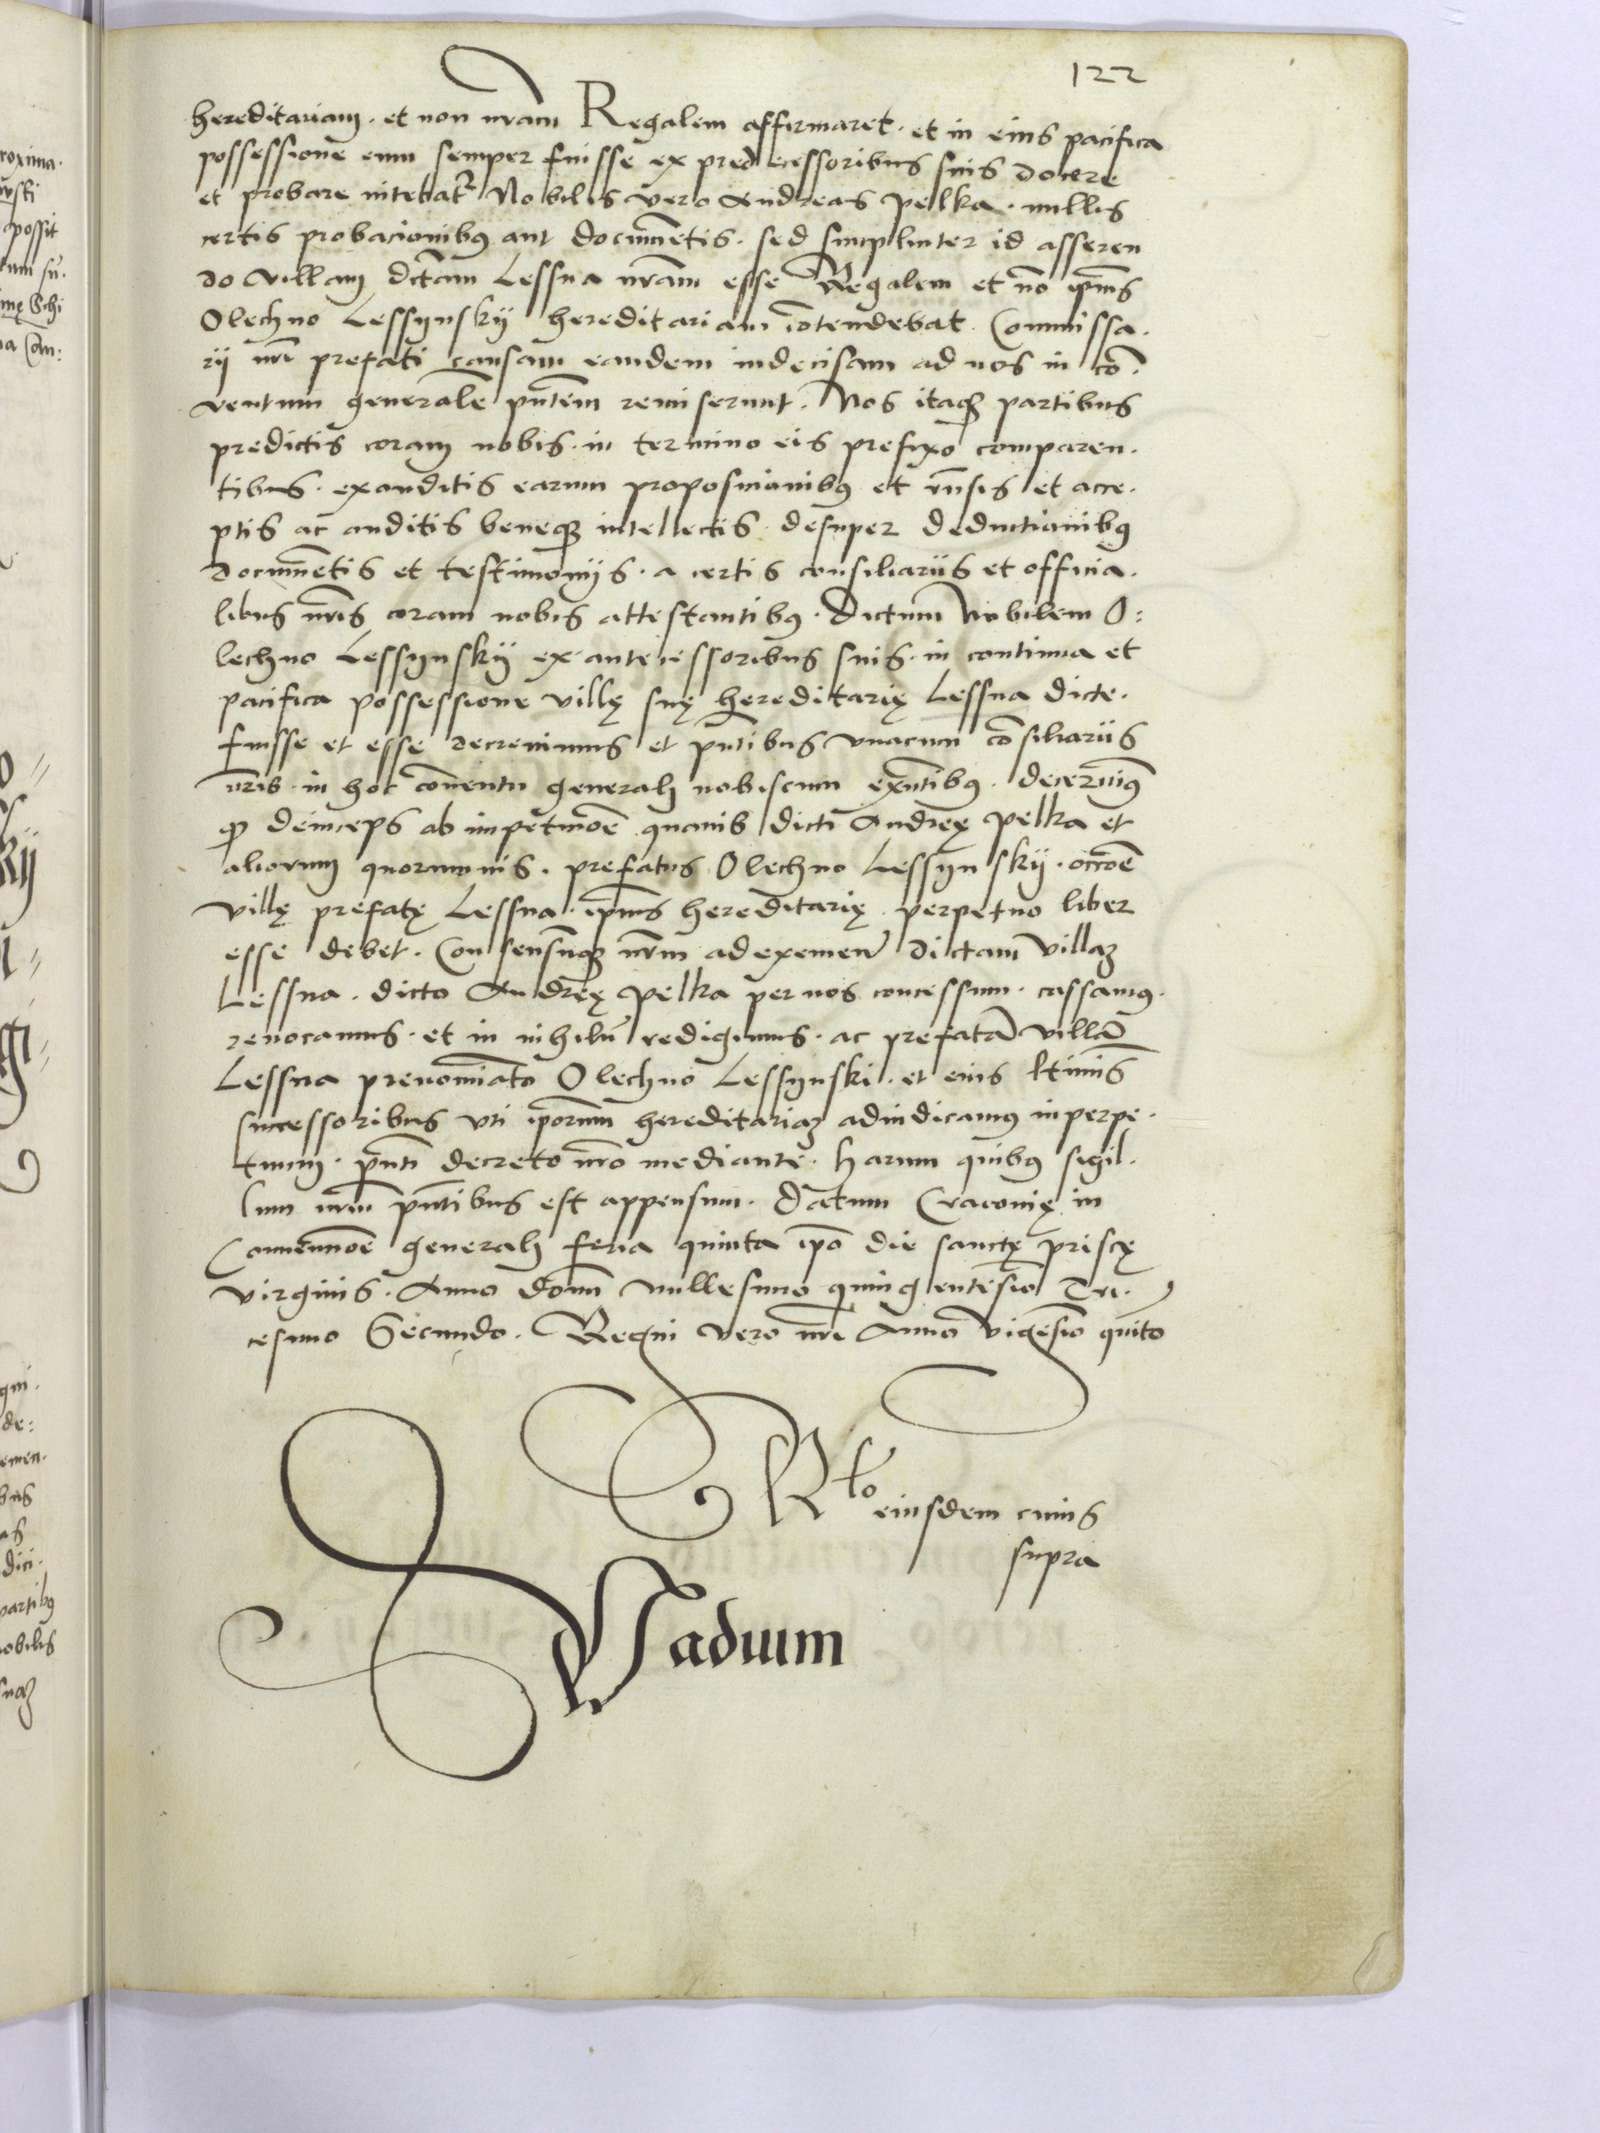 122
hereditariam. et non nram Regalem affirmaret. et in eius pacifica
possessione eum semper fuisse ex predecessoribus suis docere
et probare nitebatr Nobilis vero Andreas Pelka. nullis
certis probacionibus aut documetis. sed simpliciter id asseren
do villam dctam Lessna nram esse Regalem et no ipius
Olechno Lessÿnskÿ hereditariam cotendebat. Commissa.
rÿ nri prefati causam eandem indecisam ad nos in co.
ventum generale pntem remiserunt. Nos itaq partibus
predictis coram nobis. in termino eis prefixo comparen.
tibus. exauditis earum proposicionibus et rnsis et acce.
ptis ac auditis beneq intellectis. desuper deductionibus
documetis et testimonÿs. a certis consiliariis et officia.
libus nris coram nobis attestantibus. dictum Nobilem O:
lechno Lessÿnskÿ ex antecessoribus suis. in continua et
pacifica possessione villę suę hereditarię Lessna dicte.
fuisse et esse decrevimus et pntibus unacum cosiliariis
nris. in hoc conventu generali nobiscum exntibus. decernimus
q deinceps ab impeticoe quavis dicti Andreę Pelka et
aliorum quorumvis. prefatus Olechno Lessÿnskÿ. occoe
villę prefatę Lessna. ipius hereditarię. perpetuo liber
esse debet. Consensumq nrm ad exemen dictam villam
Lessna. dicto Andreę Pelka per nos concessum. cassamus.
revocamus. et in nihilu redigimus. ac prefata villa
Lessna prenominato Olechno Lessÿnski. et eius ltimis
successoribus uti iporum hereditariam adiudicamus in perpe.
tuum. pnti decreto nro mediante. harum quibus sigil.
lum nrm pntibus est appensum. Datum Cracovię in
Convencoe generali feria quinta ipo die sanctę Priscę
virginis. Anno domi millesimo quingentesio Tri.
cesimo Secundo. Regni vero nri Anno vigesio quito
Rto
eiusdem cuius
supra
Vadium